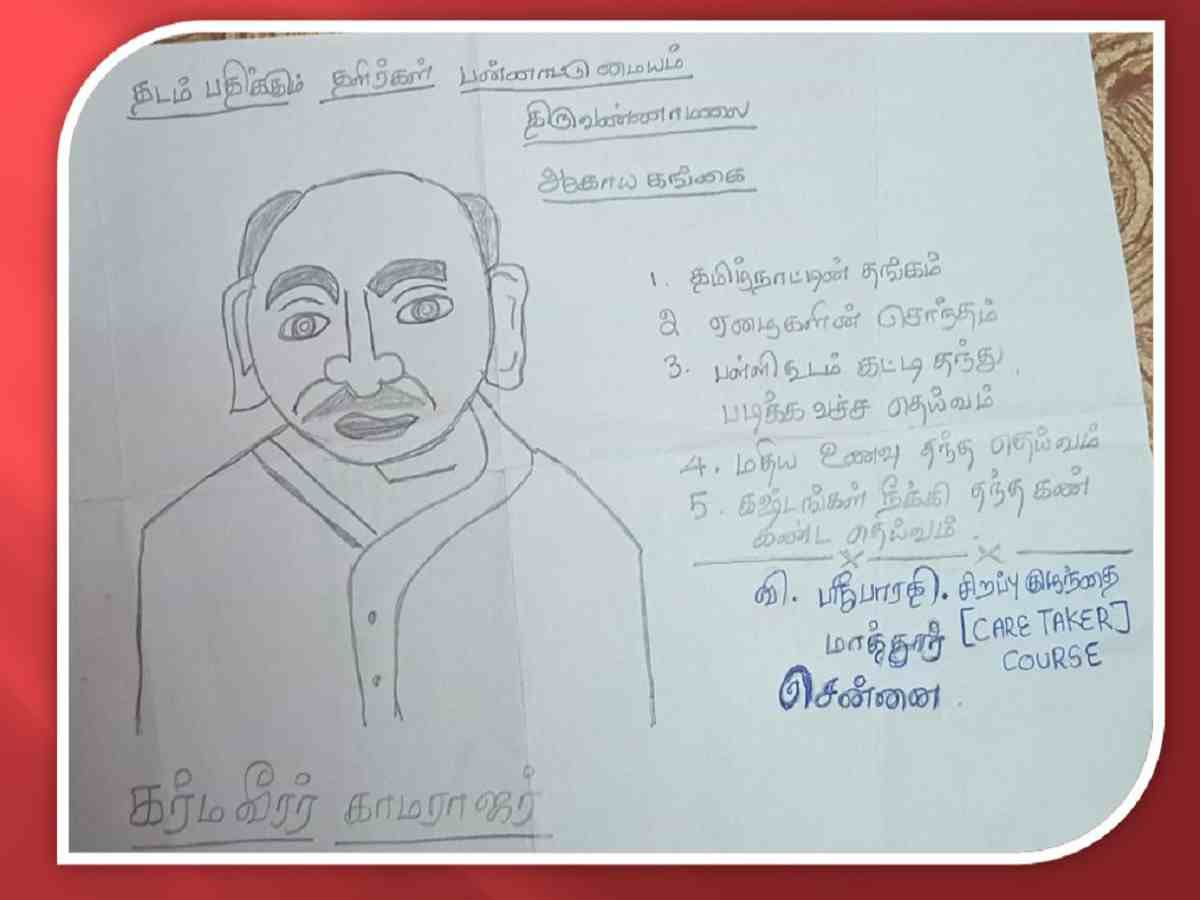 தடம் பதிக்கும் தளிர்கள் பன்னாட்டு மையம்
திருவண்ணாமலை
ஆகாய கங்கை
1. தமிழ்நாட்டின் தங்கம்
2 ஏழைகளின் சொந்தம்
3. பள்ளிகூடம் கட்டி தந்து
படிக்க வச்ச தெய்வம்
4. மதிய உணவு தந்த தெய்வம்
5. கஷ்டங்கள் நீக்கி தந்த கண்
கண்ட தெய்வம்.
வி. ஸ்ரீபாரதி. சிறப்பு குழந்தை
மாத்தூர் [CARE TAKER]
COURSE
சென்னை.
கர்மவீரர் காமராஜர்